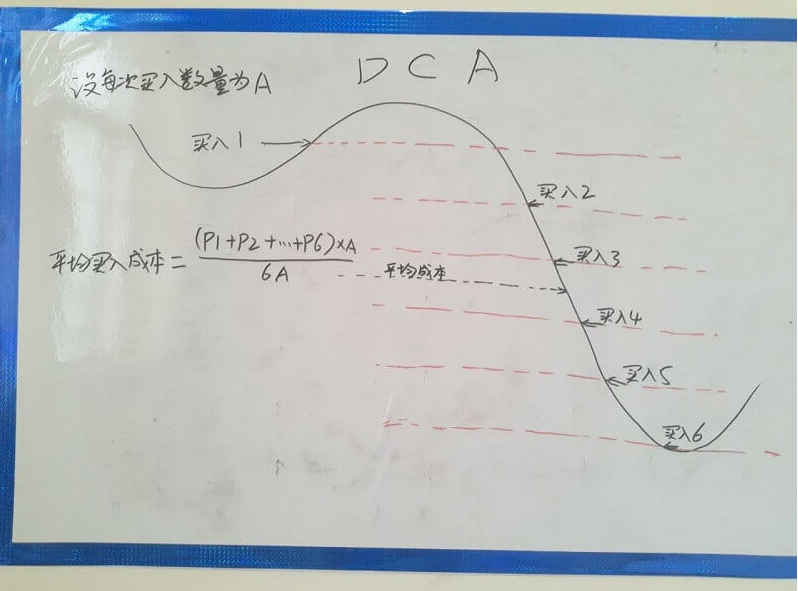 DCA
设每次买入数量为A
买入1
买入2
平均买入成本= (P1+P2+…+P6)×A
6A
买入3
平均成本
买入4
买入5
买入6